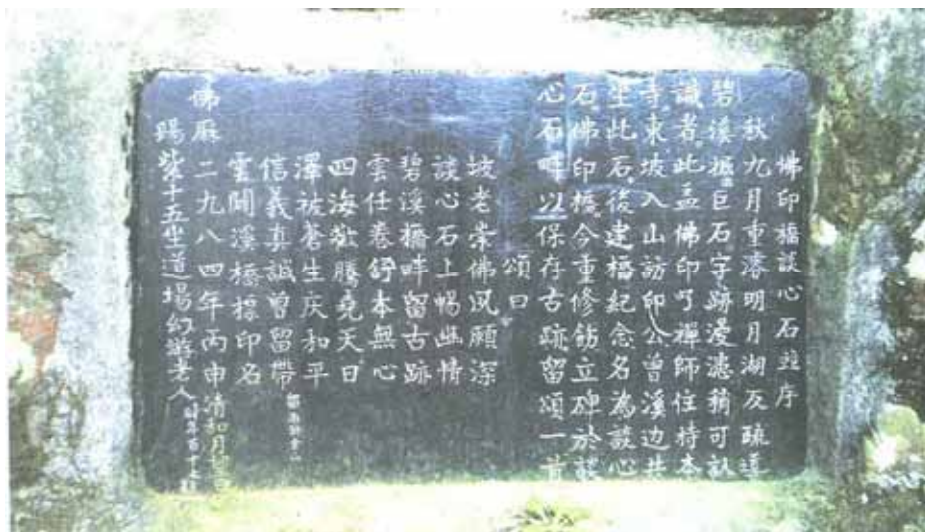 佛印橋談心石並序
秋九月重濬明月湖及疏道
碧溪掘巨石字跡漫漶稍可認
識者此孟佛印了禪師住持本
寺東坡入山訪印公曾溪边共
坐此石後建橋紀念名為談心
石佛印橋今重修飭立碑於談
心石畔以保存古跡留頌一首
頌曰
坡老崇佛夙願深
談心石上暢幽情
碧溪橋畔留古跡
雲任卷舒本無心
四海歡騰堯天日
澤被蒼生庆和平
信義真誠曾留帶
雲開溪橋標印名
佛厤二九八四年丙申清和月
賜紫十五坐道場幻遊老人